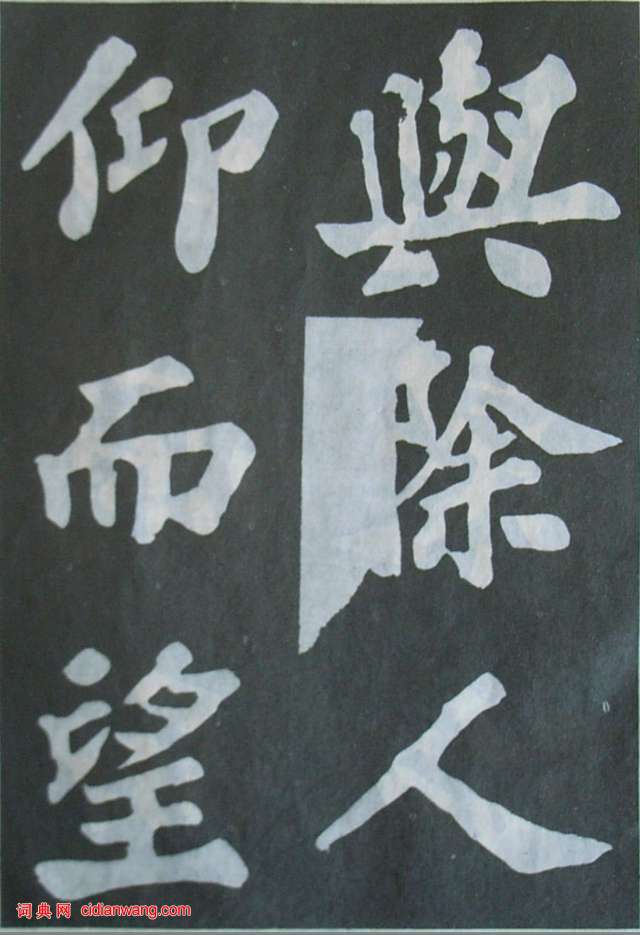 與滁人
仰而望
词典网 cidianwang.com